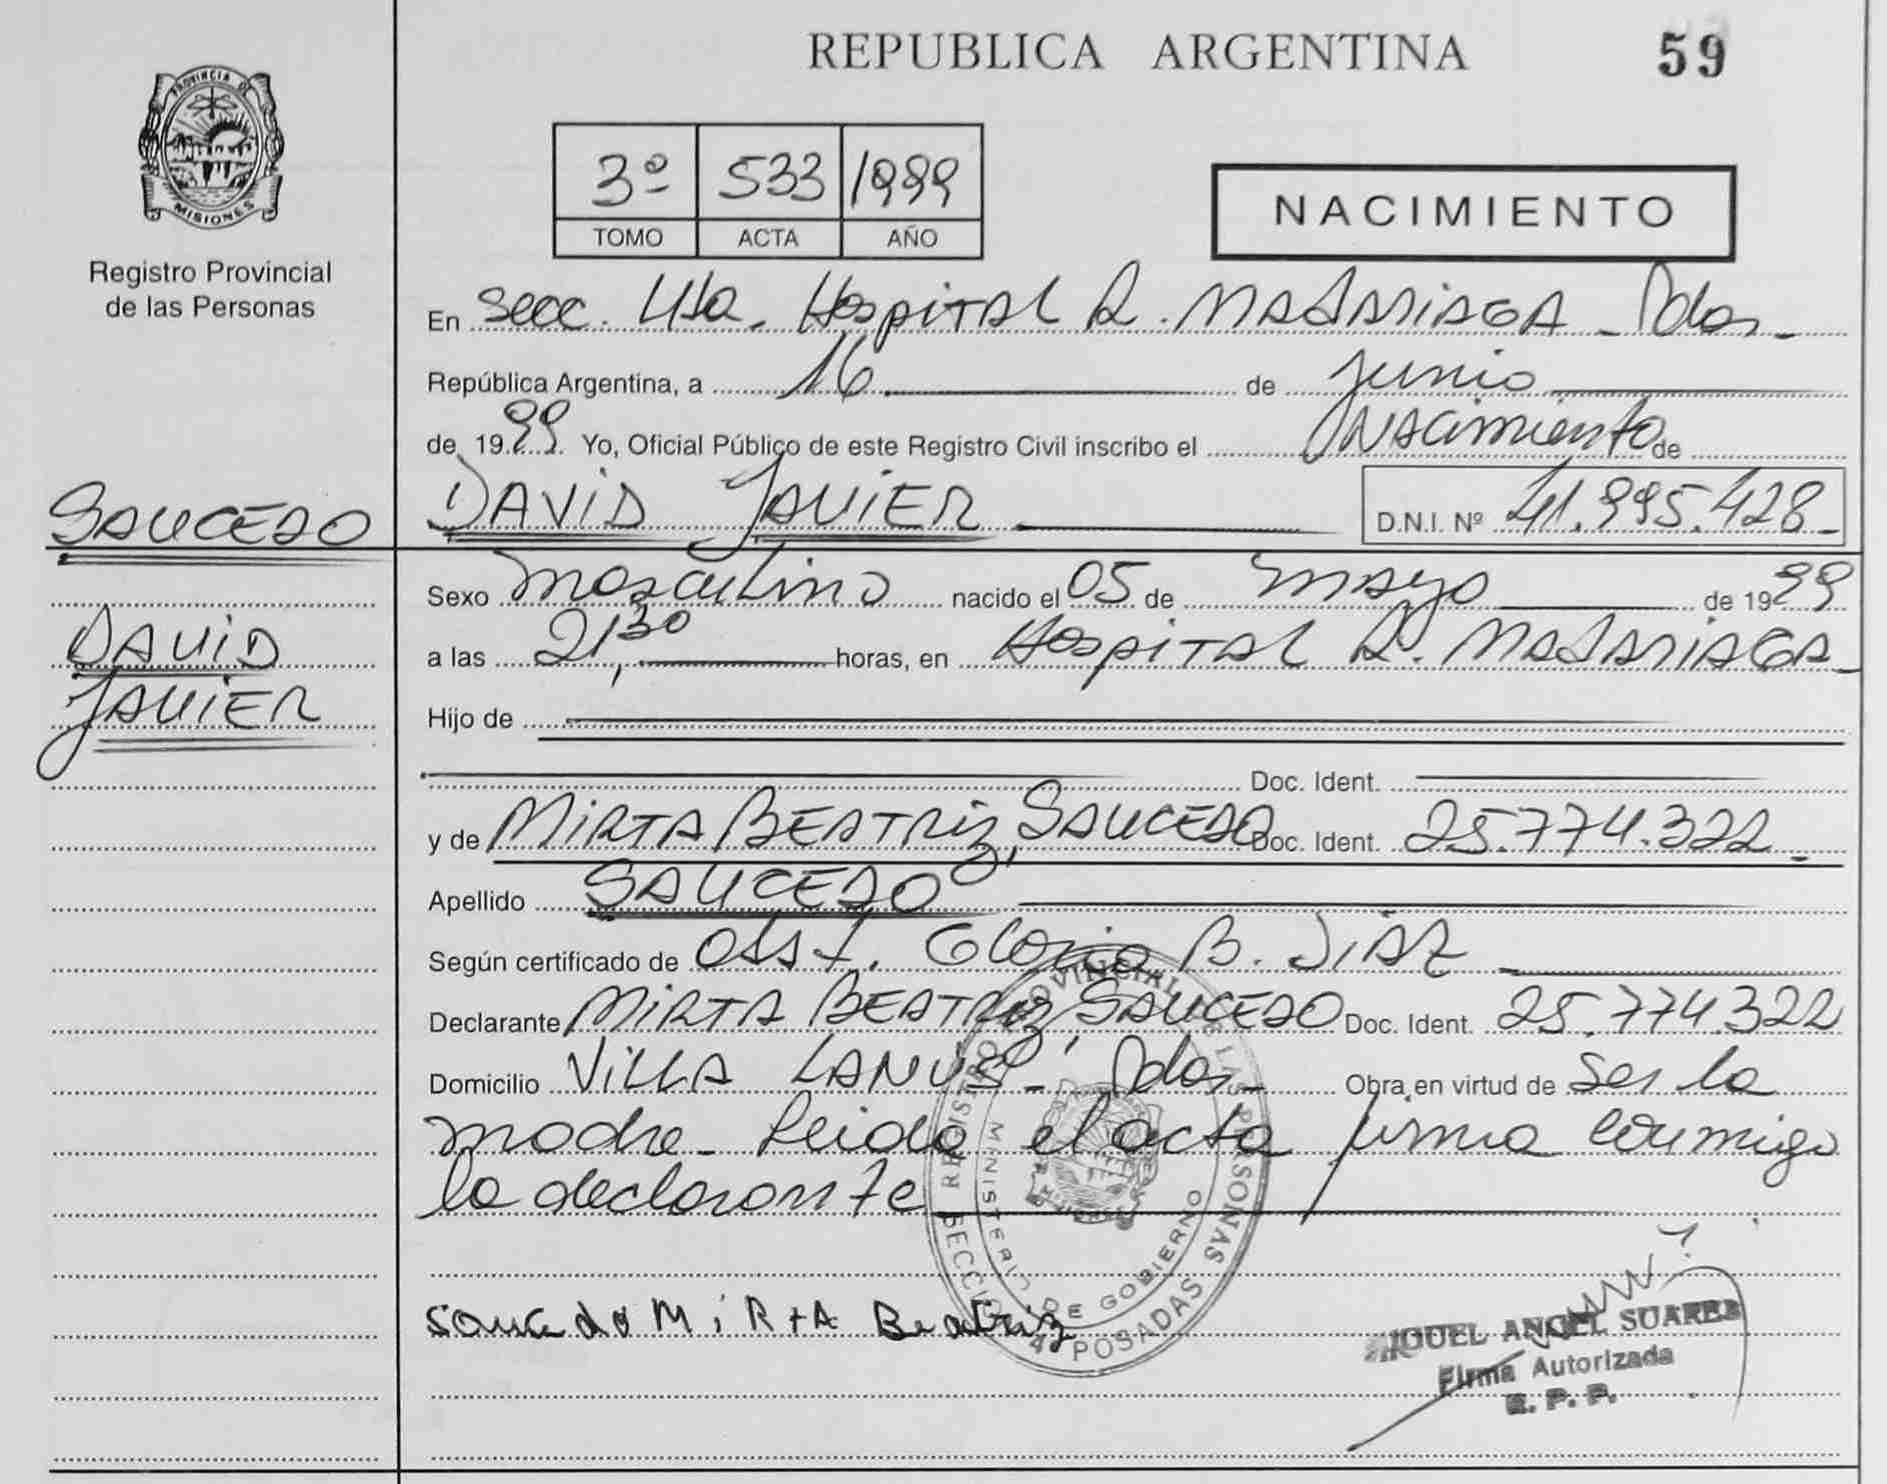 REPUBLICA ARGENTINA 59
PROVINCIA DE
MISIONES
Registro Provincial
de las Personas
3º 533 1999
TOMO ACTA AÑO
NACIMIENTO
En Secc. 4ta. Hospital R. MADARIAGA - Pdas -
República Argentina, a 16 de junio
de 1999. Yo, Oficial Público de este Registro Civil inscribo el Nacimiento de
SAUCEDO
DAVID JAVIER D.N.I. Nº 41.995.428
Sexo masculino nacido el 05 de mayo de 1999
DAVID
a las 21,30 horas, en Hospital R. MADARIAGA
JAVIER
Hijo de
Doc. Ident.
y de MIRTA BEATRIZ, SAUCEDO Doc. Ident. 25.774.322
Apellido SAUCEDO
Según certificado de Obst. Gloria B. DIAZ
Declarante MIRTA BEATRIZ, SAUCEDO Doc. Ident. 25.774.322
Domicilio VILLA LANUS - Pdas - Obra en virtud de ser la
madre - Leida el acta firma conmigo
la declarante
REGISTRO PROVINCIAL DE LAS PERSONAS
MINISTERIO DE GOBIERNO
SECCION 4ª POSADAS
Saucedo MiRtA Beatriz
MIGUEL ANGEL SUAREZ
Firma Autorizada
R. P. P.